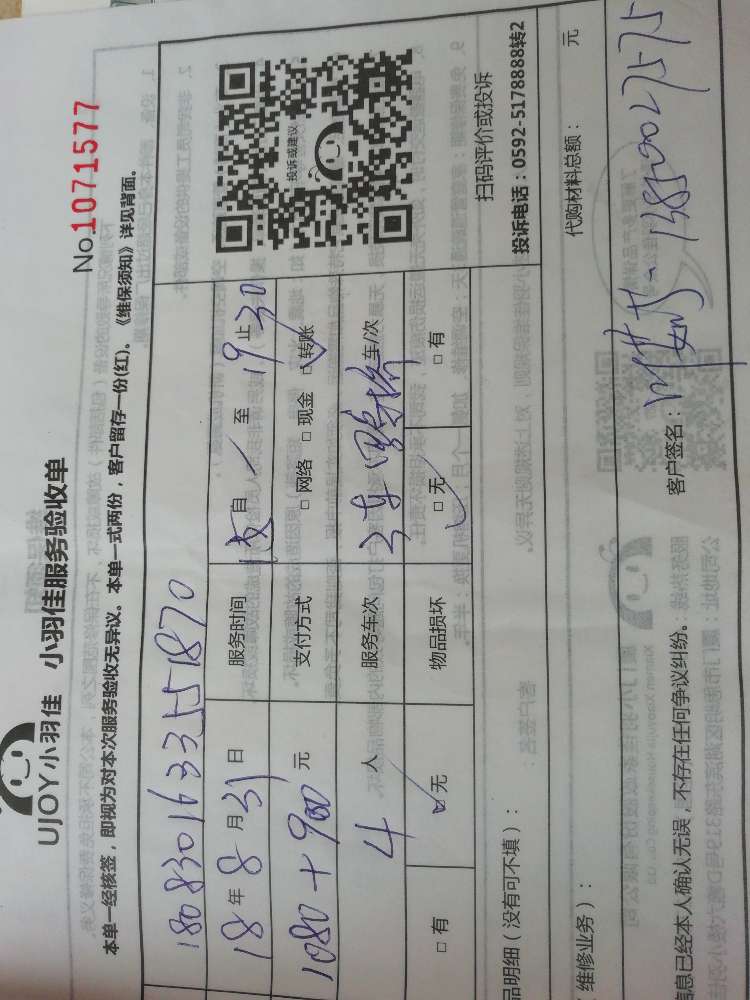 UJOY小羽佳 小羽佳服务验收单
No.1071577
本单一经核签，即视为对本次服务验收无异议。本单一式两份，客户留存一份(红)。《维保须知》详见背面。
180830163355 1870
18年8月31日 服务时间 自 至 19 30 止
1080+900元 支付方式 □网络 □现金 □转账
4人 服务车次 3车 车/次
□有 □无 物品损坏 □无 □有
投诉或建议
扫码评价或投诉
投诉电话：0592-5178888转2
品明细（没有可不填）：
维修业务）： 代购材料总额： 元
信息已经本人确认无误，不存在任何争议纠纷。 客户签名： 13850027575